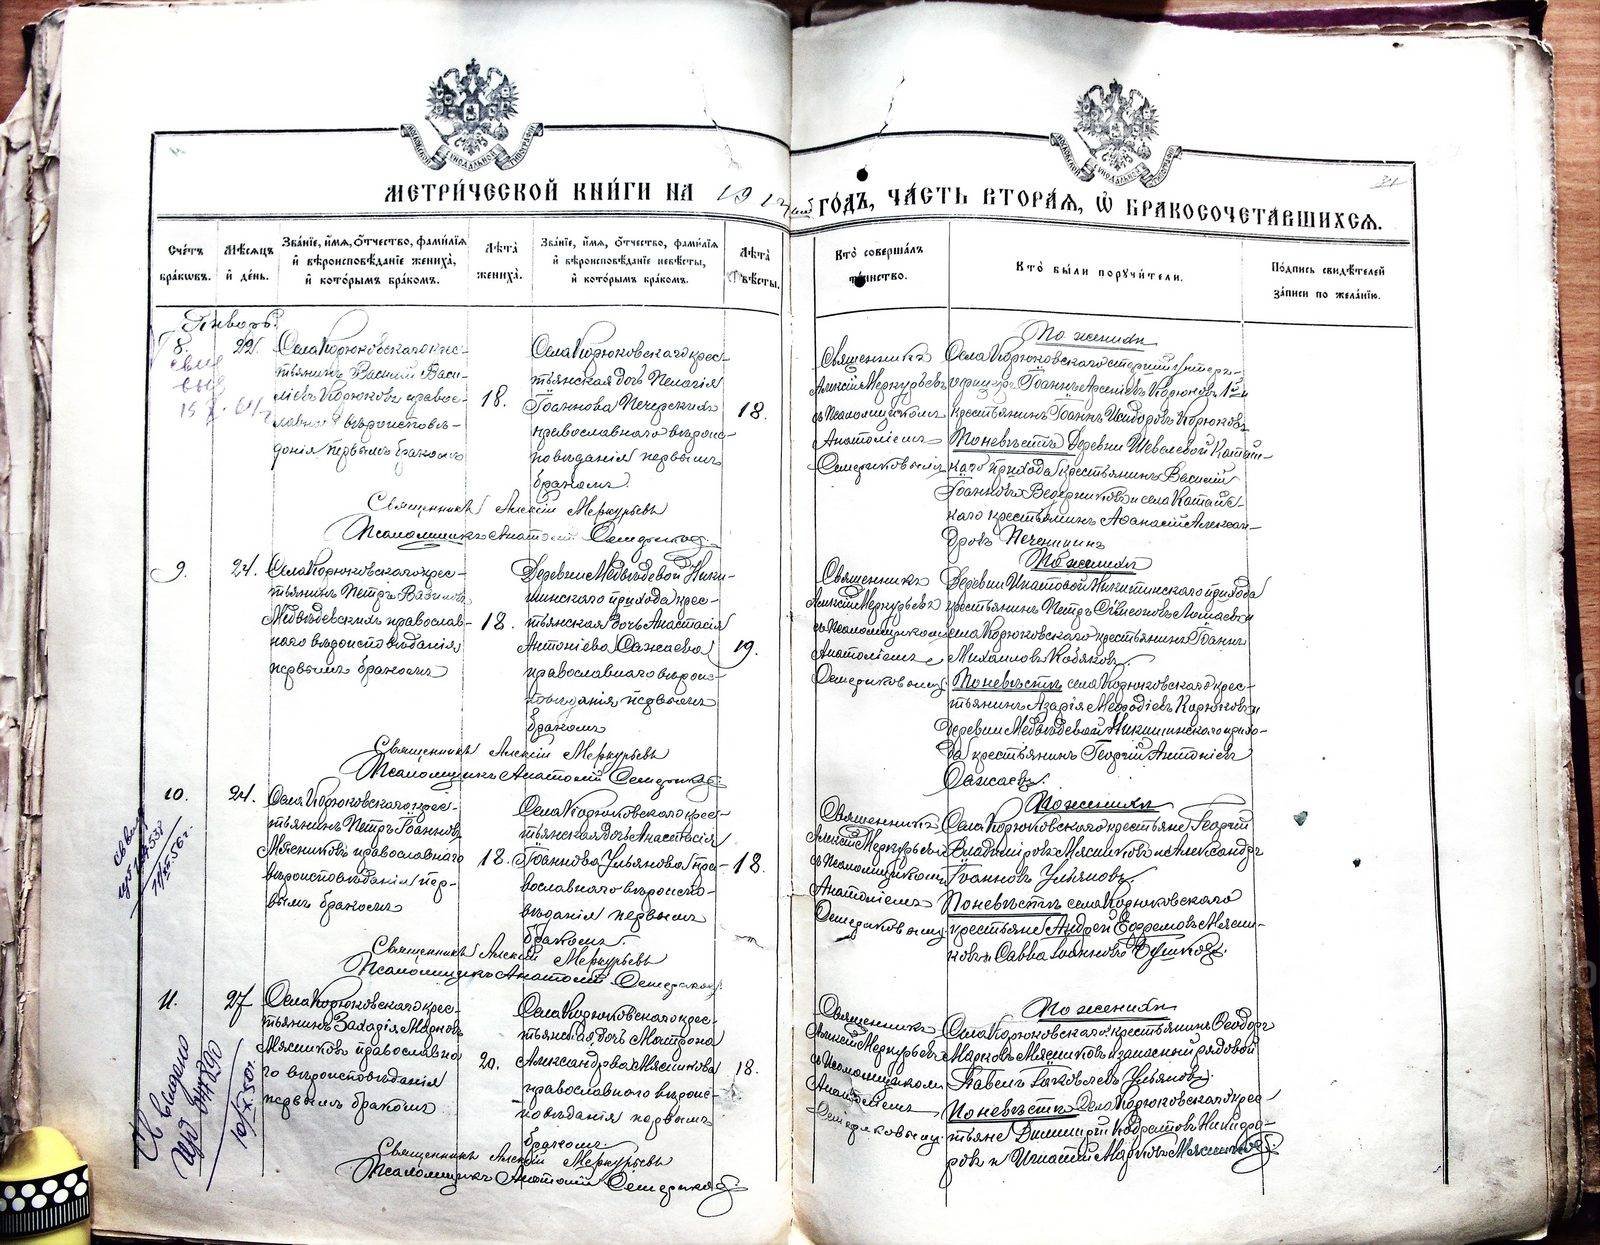 МЕТРИ́ЧЕСКОЙ КНИ́ГИ НА 1913 ый ГО́ДЪ, ЧА́СТЬ ВТОРА́Я, Ѡ БРАКОСОЧЕТА́ВШИХСѦ.
Сче́тъ бра́кѡвъ.
Мѣ́сяцъ и҆ де́нь.
Зва́нїе, и҆́мя, ѻ҆́тчество, фами́лїя
и҆ вѣроисповѣ́данїе жениха̀,
и҆ кото́рымъ бра́комъ.
Лѣ́та жениха̀.
Зва́нїе, и҆́мя, ѻ҆́тчество, фами́лїя
и҆ вѣроисповѣ́данїе невѣ́сты,
и҆ кото́рымъ бра́комъ.
Лѣ́та
Кто̀ соверша́лъ
та́инство.
Кто̀ бы́ли поручи́тели.
По́дпись свидѣ́телей
за́писи по жела́нїю.
Январь.
8.
22.
Села Корюковскаго крес-
тьянинъ Василій Васи-
ліевъ Корюковъ правос-
лавнаго вѣроисповѣ-
данія первымъ бракомъ
18.
Села Корюковскаго крес-
тьянская дочь Пелагія
Іоаннова Печерскихъ
православнаго вѣроис-
повѣданія первымъ
бракомъ.
18.
Священникъ
Алексій Меркурьевъ
съ псаломщикомъ
Анатоліемъ
По женихѣ
Села Корюковскаго старшій унтеръ-
офицеръ Іоаннъ Арсеніевъ Корюковъ 1й и
крестьянинъ Іоаннъ Исидоровъ Корюковъ
По невѣстѣ деревни Шевалевой Катай-
скаго прихода крестьянинъ Василій
Іоанновъ Ведерниковъ и села Катай-
скаго крестьянинъ Афанасій Алексан-
дровъ Печенкинъ
Священникъ Алексій Меркурьевъ
Псаломщикъ Анатолій
9.
24.
Села Корюковскаго крес-
тьянинъ Петръ
Медвѣдевскихъ православ-
наго вѣроисповѣданія
первымъ бракомъ
18.
Деревни Медвѣдевой Ники-
тинскаго прихода крес-
тьянская дочь Анастасія
Антоніева Сажаева
православнаго вѣроис-
повѣданія первымъ
бракомъ
19.
Священникъ
Алексій Меркурьевъ
съ псаломщикомъ
Анатоліемъ
По женихѣ
Деревни Игнатовой Никитинскаго прихода
крестьянинъ Петръ
села Корюковскаго крестьянинъ Іоаннъ
Михаиловъ Кабаковъ.
По невѣстѣ села Корюковскаго крес-
тьянинъ Азарія Меѳодіевъ Корюковъ и
деревни Медвѣдевой Никитинскаго прихо-
да крестьянинъ Георгій Антоніевъ
Сажаевъ.
Священникъ Алексій Меркурьевъ
Псаломщикъ Анатолій
10.
24.
Села Корюковскаго крес-
тьянинъ Петръ Іоанновъ
Мясниковъ православнаго
вѣроисповѣданія пер-
вымъ бракомъ
18.
Села Корюковскаго крес-
тьянская дочь Анастасія
Іоаннова Ульянова пра-
вославнаго вѣроиспо-
вѣданія первымъ
бракомъ.
18.
Священникъ
Алексій Меркурьевъ
съ псаломщикомъ
Анатоліемъ
По женихѣ
Села Корюковскаго крестьяне Георгій
Владиміровъ Мясниковъ и Александръ
Іоанновъ Ульяновъ.
По невѣстѣ села Корюковскаго
крестьяне Андрей Ефремовъ Мясни-
ковъ и Савва Іоанновъ
Священникъ Алексій Меркурьевъ
Псаломщикъ Анатолій
11.
27
Села Корюковскаго крес-
тьянинъ Захарія Марковъ
Мясниковъ православна
го вѣроисповѣданія
первымъ бракомъ
20.
Села Корюковскаго крес-
тьянская дочь Матрона
Александрова Мясникова
православнаго вѣроис-
повѣданія первымъ
бракомъ.
18.
Священникъ
Алексій Меркурьевъ
съ псаломщикомъ
Анатоліемъ
По женихѣ
Села Корюковскаго крестьянинъ Ѳеодоръ
Марковъ Мясниковъ и запасный рядовой
Павелъ Іаковлевъ Ульяновъ.
По невѣстѣ Села Корюковскаго крес-
тьяне Димитрій Кодратовъ Никифо-
ровъ и Игнатій Марковъ Мясниковъ.
Священникъ Алексій Меркурьевъ
Псаломщикъ Анатолій